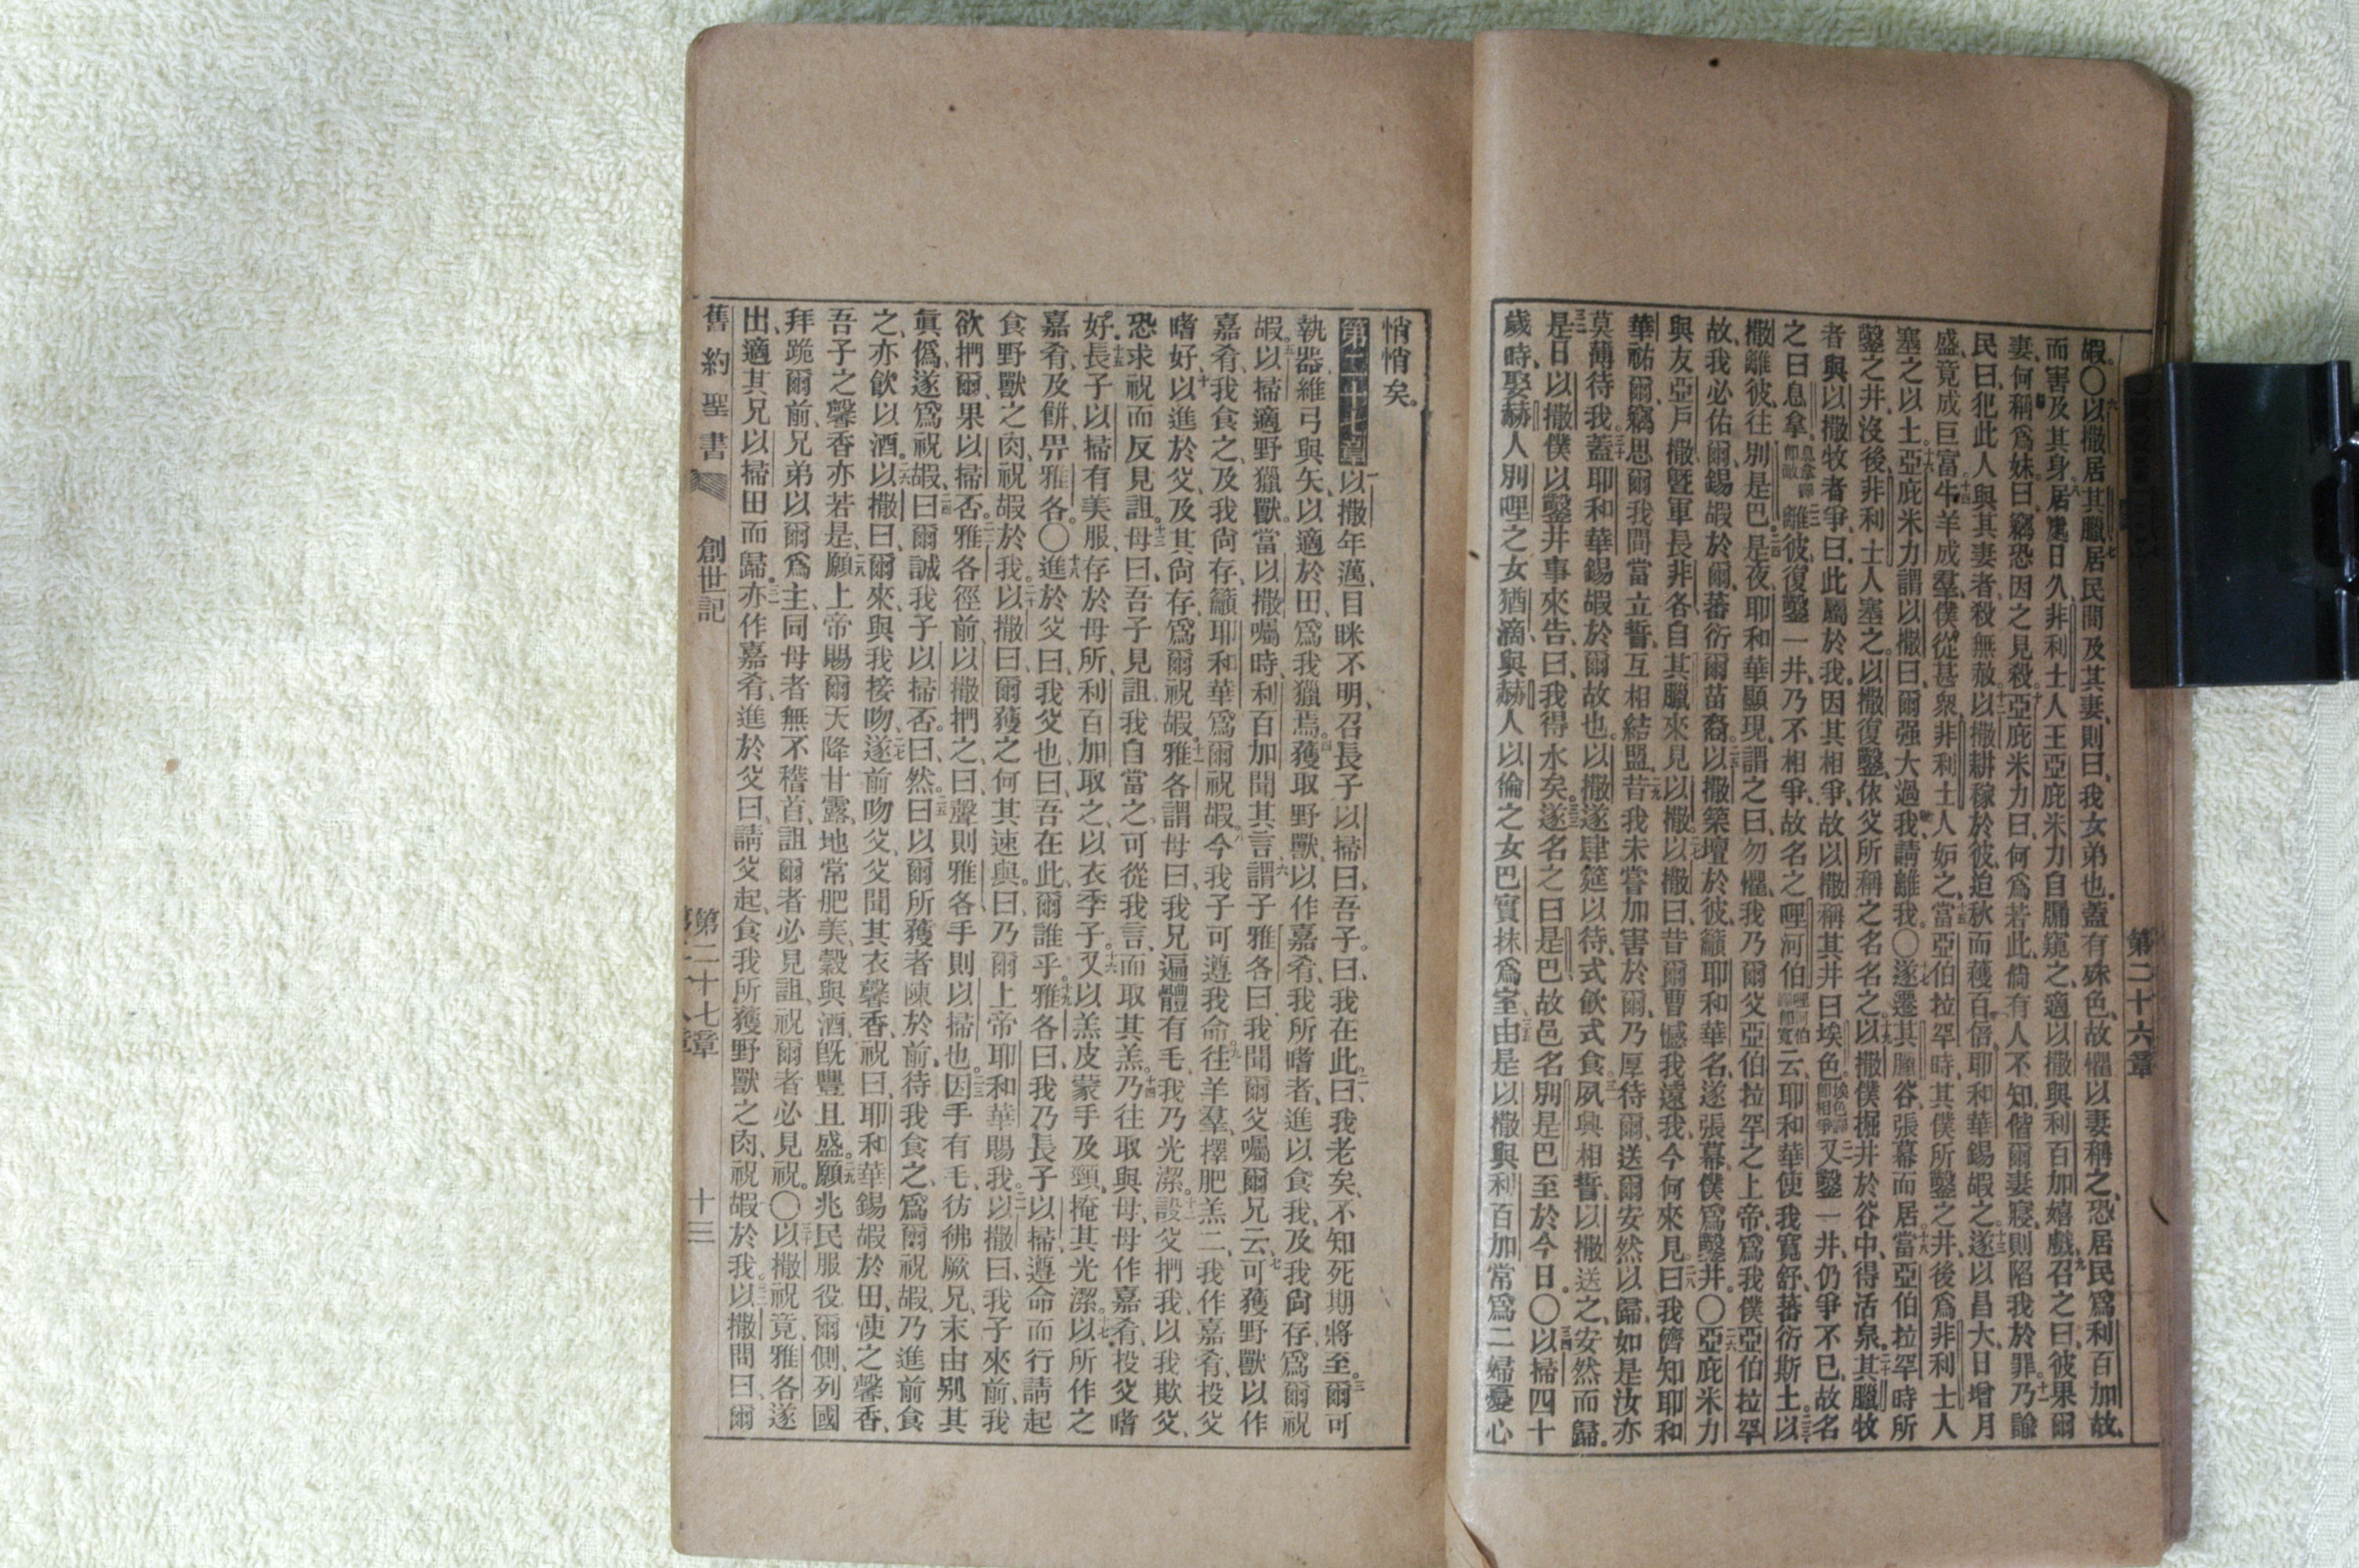 嘏。〇六以撒居其臘、七居民間及其妻、則曰、我女弟也。蓋有殊色、故懼以妻稱之、恐居民爲利百加故、
而害及其身。八居處日久、非利士人王亞庇米力自牖窺之、適以撒與利百加嬉戲。九召之曰、彼果爾
妻、何稱爲妹。曰、竊恐因之見殺。十亞庇米力曰、何爲若此、倘有人不知、偕爾妻寢、則陷我於罪。十一乃諭
民曰、犯此人與其妻者、殺無赦。十二以撒耕稼於彼、迨秋而穫百倍、耶和華錫嘏之。十三遂以昌大、日增月
盛、竟成巨富。十四牛羊成羣、僕從甚衆、非利士人妒之。十五當亞伯拉罕時、其僕所鑿之井、後爲非利士人
塞之以土。十六亞庇米力謂以撒曰、爾强大過我、請離我。〇十七遂遷其臘谷、張幕而居。十八當亞伯拉罕時所
鑿之井、沒後、非利士人塞之。以撒復鑿、依父所稱之名名之。十九以撒僕掘井於谷中、得活泉。二十其臘牧
者與以撒牧者爭、曰、此屬於我、因其相爭、故以撒稱其井曰埃色。埃色譯卽相爭二一又鑿一井、仍爭不已、故名
之曰息拿。息拿譯卽敵二二離彼、復鑿一井、乃不相爭、故名之哩河伯哩河伯譯卽寬云、耶和華使我寬舒、蕃衍斯土。二三以
撒離彼、往別是巴。二四是夜、耶和華顯現、謂之曰、勿懼、我乃爾父亞伯拉罕之上帝、爲我僕亞伯拉罕
故、我必佑爾、錫嘏於爾、蕃衍爾苗裔。二五以撒築壇於彼、籲耶和華名、遂張幕、僕爲鑿井。〇二六亞庇米力
與友亞戶撒曁軍長非各自其臘來見以撒。二七以撒曰、昔爾曹憾我遠我、今何來見。二八曰、我儕知耶和
華祐爾、竊思爾我間當立誓、互相結盟。二九昔我未嘗加害於爾、乃厚待爾、送爾安然以歸、如是汝亦
莫薄待我。三十蓋耶和華錫嘏於爾故也。以撒遂肆筵以待、式飲式食。三一夙興相誓、以撒送之、安然而歸。
三二是日以撒僕以鑿井事來告、曰、我得水矣。三三遂名之曰是巴、故邑名別是巴、至於今日。〇三四以掃四十
歲時、娶赫人別哩之女猶滴、與赫人以倫之女巴實抹爲室。三五由是以撒與利百加常爲二婦憂心
第二十六章
悄悄矣。
第二十七章 一以撒年邁、目眯不明、召長子以掃曰、吾子。曰、我在此。二曰、我老矣、不知死期將至。三爾可
執器維弓與矢、以適於田、爲我獵焉。四獲取野獸、以作嘉肴、我所嗜者、進以食我、及我尙存、爲爾祝
嘏。五以掃適野獵獸。當以撒囑時、利百加聞其言、六謂子雅各曰、我聞爾父囑爾兄云、七可獲野獸以作
嘉肴、我食之、及我尙存、籲耶和華爲爾祝嘏。八今我子可遵我命。九往羊羣、擇肥羔二、我作嘉肴、投父
嗜好、十以進於父、及其尙存、爲爾祝嘏。十一雅各謂母曰、我兄遍體有毛、我乃光潔。十二設父捫我、以我欺父、
恐求祝而反見詛。十三母曰、吾子見詛、我自當之、可從我言、而取其羔。十四乃往取與母、母作嘉肴、投父嗜
好。十五長子以掃有美服、存於母所、利百加取之、以衣季子。十六又以羔皮蒙手及頸、掩其光潔。十七以所作之
嘉肴、及餅、畀雅各。〇十八進於父曰、我父也、曰、吾在此、爾誰乎。十九雅各曰、我乃長子以掃、遵命而行、請起
食野獸之肉、祝嘏於我。二十以撒曰、爾獲之何其速與。曰、乃爾上帝耶和華賜我。二一以撒曰、我子來前、我
欲捫爾、果以掃否。二二雅各徑前、以撒捫之曰、聲則雅各、手則以掃也。二三因手有毛、彷彿厥兄、末由別其
眞僞、遂爲祝嘏、二四曰、爾誠我子以掃否。曰、然。二五曰、以爾所獲者陳於前、待我食之、爲爾祝嘏、乃進前食
之、亦飮以酒。二六以撒曰、爾來與我接吻、二七遂前吻父、父聞其衣馨香、祝曰、耶和華錫嘏於田、使之馨香、
吾子之馨香亦若是、二八願上帝賜爾天降甘露、地常肥美、穀與酒、旣豐且盛。二九願兆民服役爾側、列國
拜跪爾前、兄弟以爾爲主、同母者無不稽首、詛爾者必見詛、祝爾者必見祝。〇三十以撒祝竟、雅各遂
出、適其兄以掃田而歸。三一亦作嘉肴、進於父曰、請父起、食我所獲野獸之肉、祝嘏於我。三二以撒問曰、爾
舊約聖書 創世記 第二十七章 十三